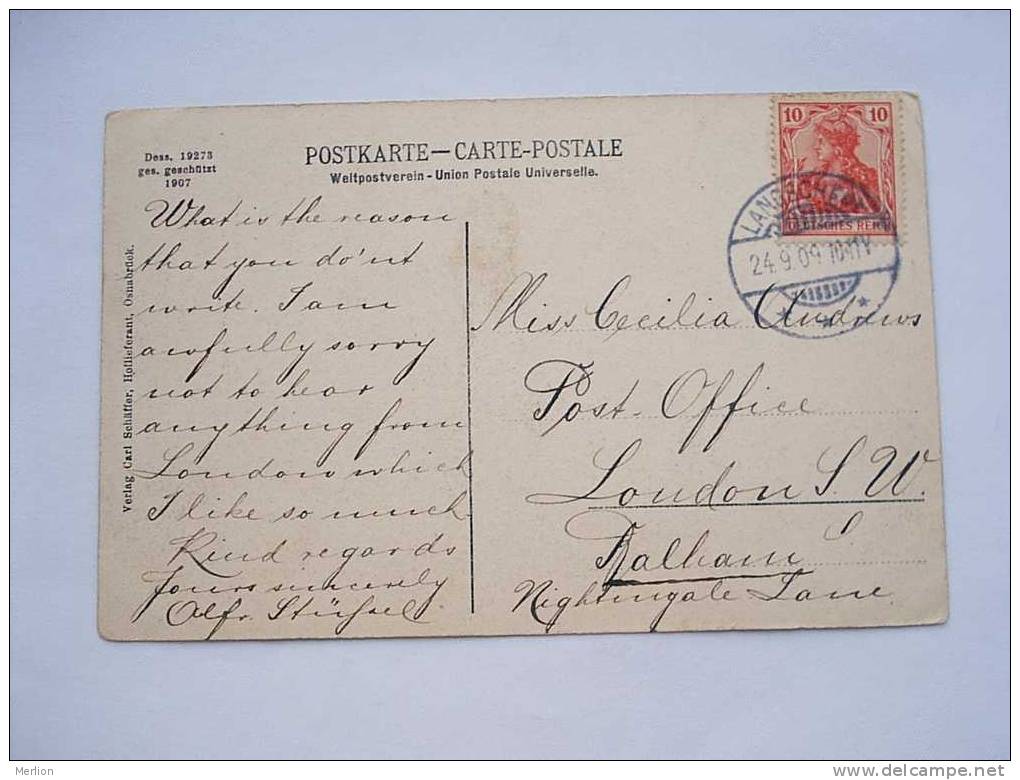 Dess. 19273
ges. geschützt
1907
POSTKARTE—CARTE-POSTALE
Weltpostverein - Union Postale Universelle.
Verlag Carl Schäffer, Hoflieferant, Osnabrück.
10 10
DEUTSCHES REICH
24.9.09
What is the reason
that you do'nt
write. I am
awfully sorry
not to hear
anything from
London which
I like so much
Kind regards
Yours sincerely
Miss Cecilia Andrews
Post-Office
London S.W.
Balham
Nightingale Lane.
Merlion
www.delcampe.net